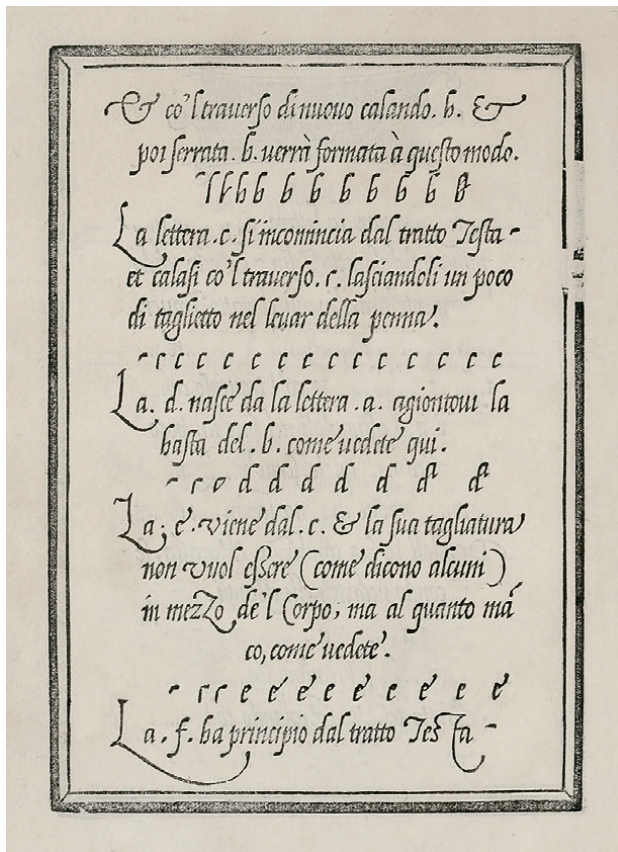 & co'l trauerso di nuouo calando. b. &
poi serrata. b. uerrà formata à questo modo.
b b b b b b b b
La lettera .c. si incomincia dal tratto Testa -
et calasi co'l trauerso. c. lasciandoli un poco
di taglietto nel leuar della penna.
- r c c c c c c c c c c c c c
La. d. nasce da la lettera .a. agiontoui la
hasta del .b. come uedete qui.
- r d d d d d d d
La; e. viene dal .c. & la sua tagliatura
non vuol essere (come dicono alcuni)
in mezzo de'l Corpo; ma al quanto mā
co, come uedete.
- r r e e e e e e e e e
La .f. ha principio dal tratto Testa -